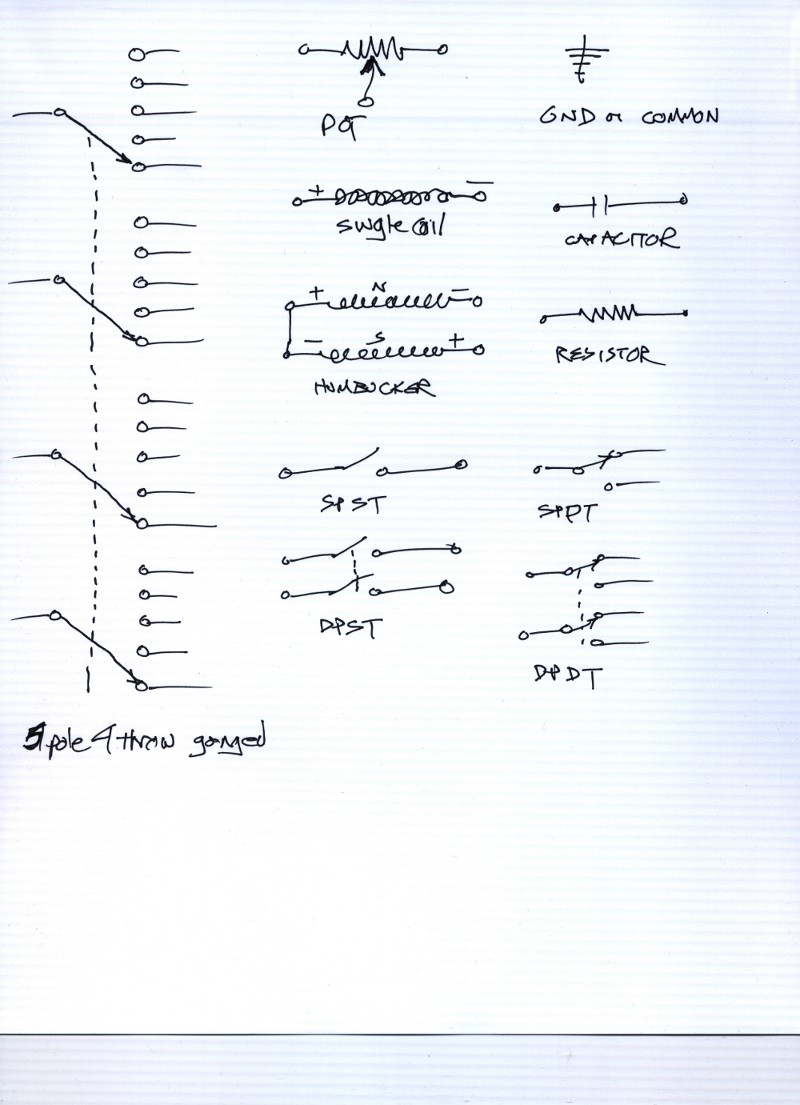 POT
GND or COMMON
+ -
single coil
CAPACITOR
+ N -
- S +
HUMBUCKER
RESISTOR
SPST
SPDT
DPST
DPDT
5 pole 4 throw ganged